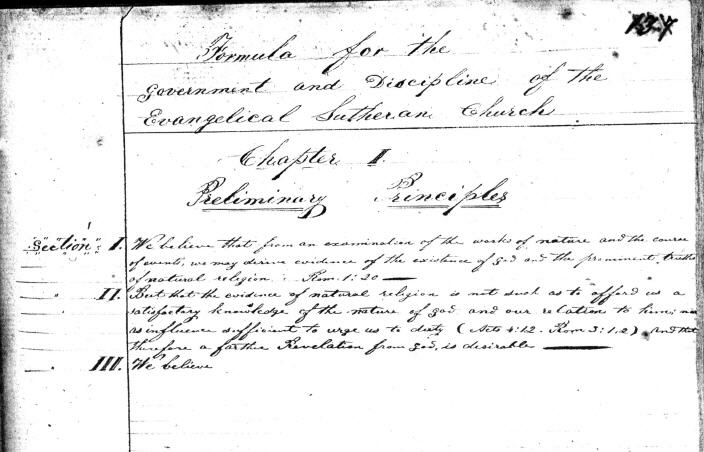 134
Formula for the
Government and Discipline of the
Evangelical Lutheran Church
Chapter I.
Preliminary Principles
Section I. We believe that from an examination of the works of nature and the course
of events, we may derive evidence of the existence of God and the prominent truths
of natural religion. Rom. 1:20
" II. But that the evidence of natural religion is not such as to afford us a
satisfactory knowledge of the nature of God and our relation to him; nor
as influence sufficient to urge us to duty (Acts 4:12. Rom 3:1,2) And that
therefore a farther Revelation from God, is desirable
" III. We believe